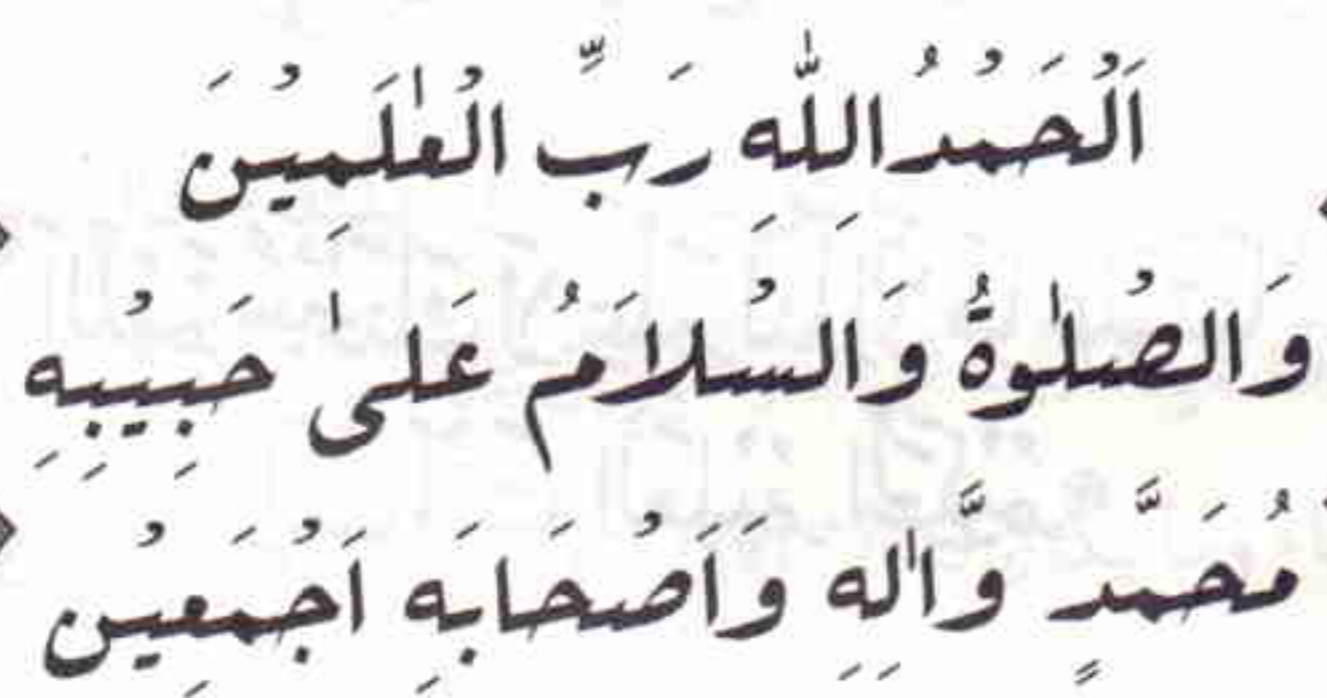 اَلْحَمْدُ الِلّٰهِ رَبِّ الْعٰلَمِيْنَ
وَالصْلٰوةُ وَالسْلاَمُ عَلىٰ حَبِيْبِهِ
مُحَمَّدٍ وَّاٰلِهِ وَاَصْحَابَهِ اَجْمَعِيْن